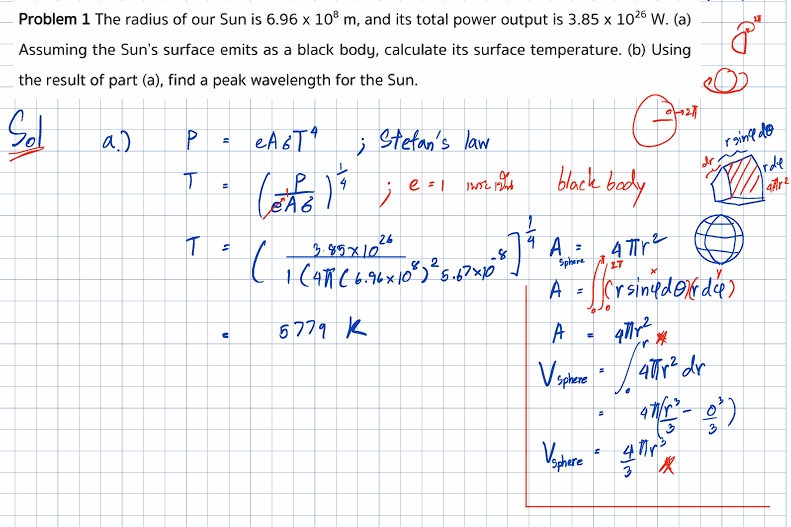 Problem 1 The radius of our Sun is 6.96 x 10⁸ m, and its total power output is 3.85 x 10²⁶ W. (a)
Assuming the Sun's surface emits as a black body, calculate its surface temperature. (b) Using
the result of part (a), find a peak wavelength for the Sun.
Sol a.) P = eAσT⁴ ; Stefan's law
T = (P / eAσ)^(1/4) ; e = 1 เพราะเป็น black body
T = (3.85×10²⁶ / 1(4π(6.96×10⁸)² 5.67×10⁻⁸]^(1/4)
= 5779 K
→2π
r sinφ dθ
dr
rdφ
4πr²
A sphere = 4πr²
A = ∫₀ ∫₀^2π (r sinφ dθ)(r dφ)
x y
A = 4πr²
V sphere = ∫₀^r 4πr² dr
= 4π(r³/3 - 0³/3)
V sphere = 4/3 πr³